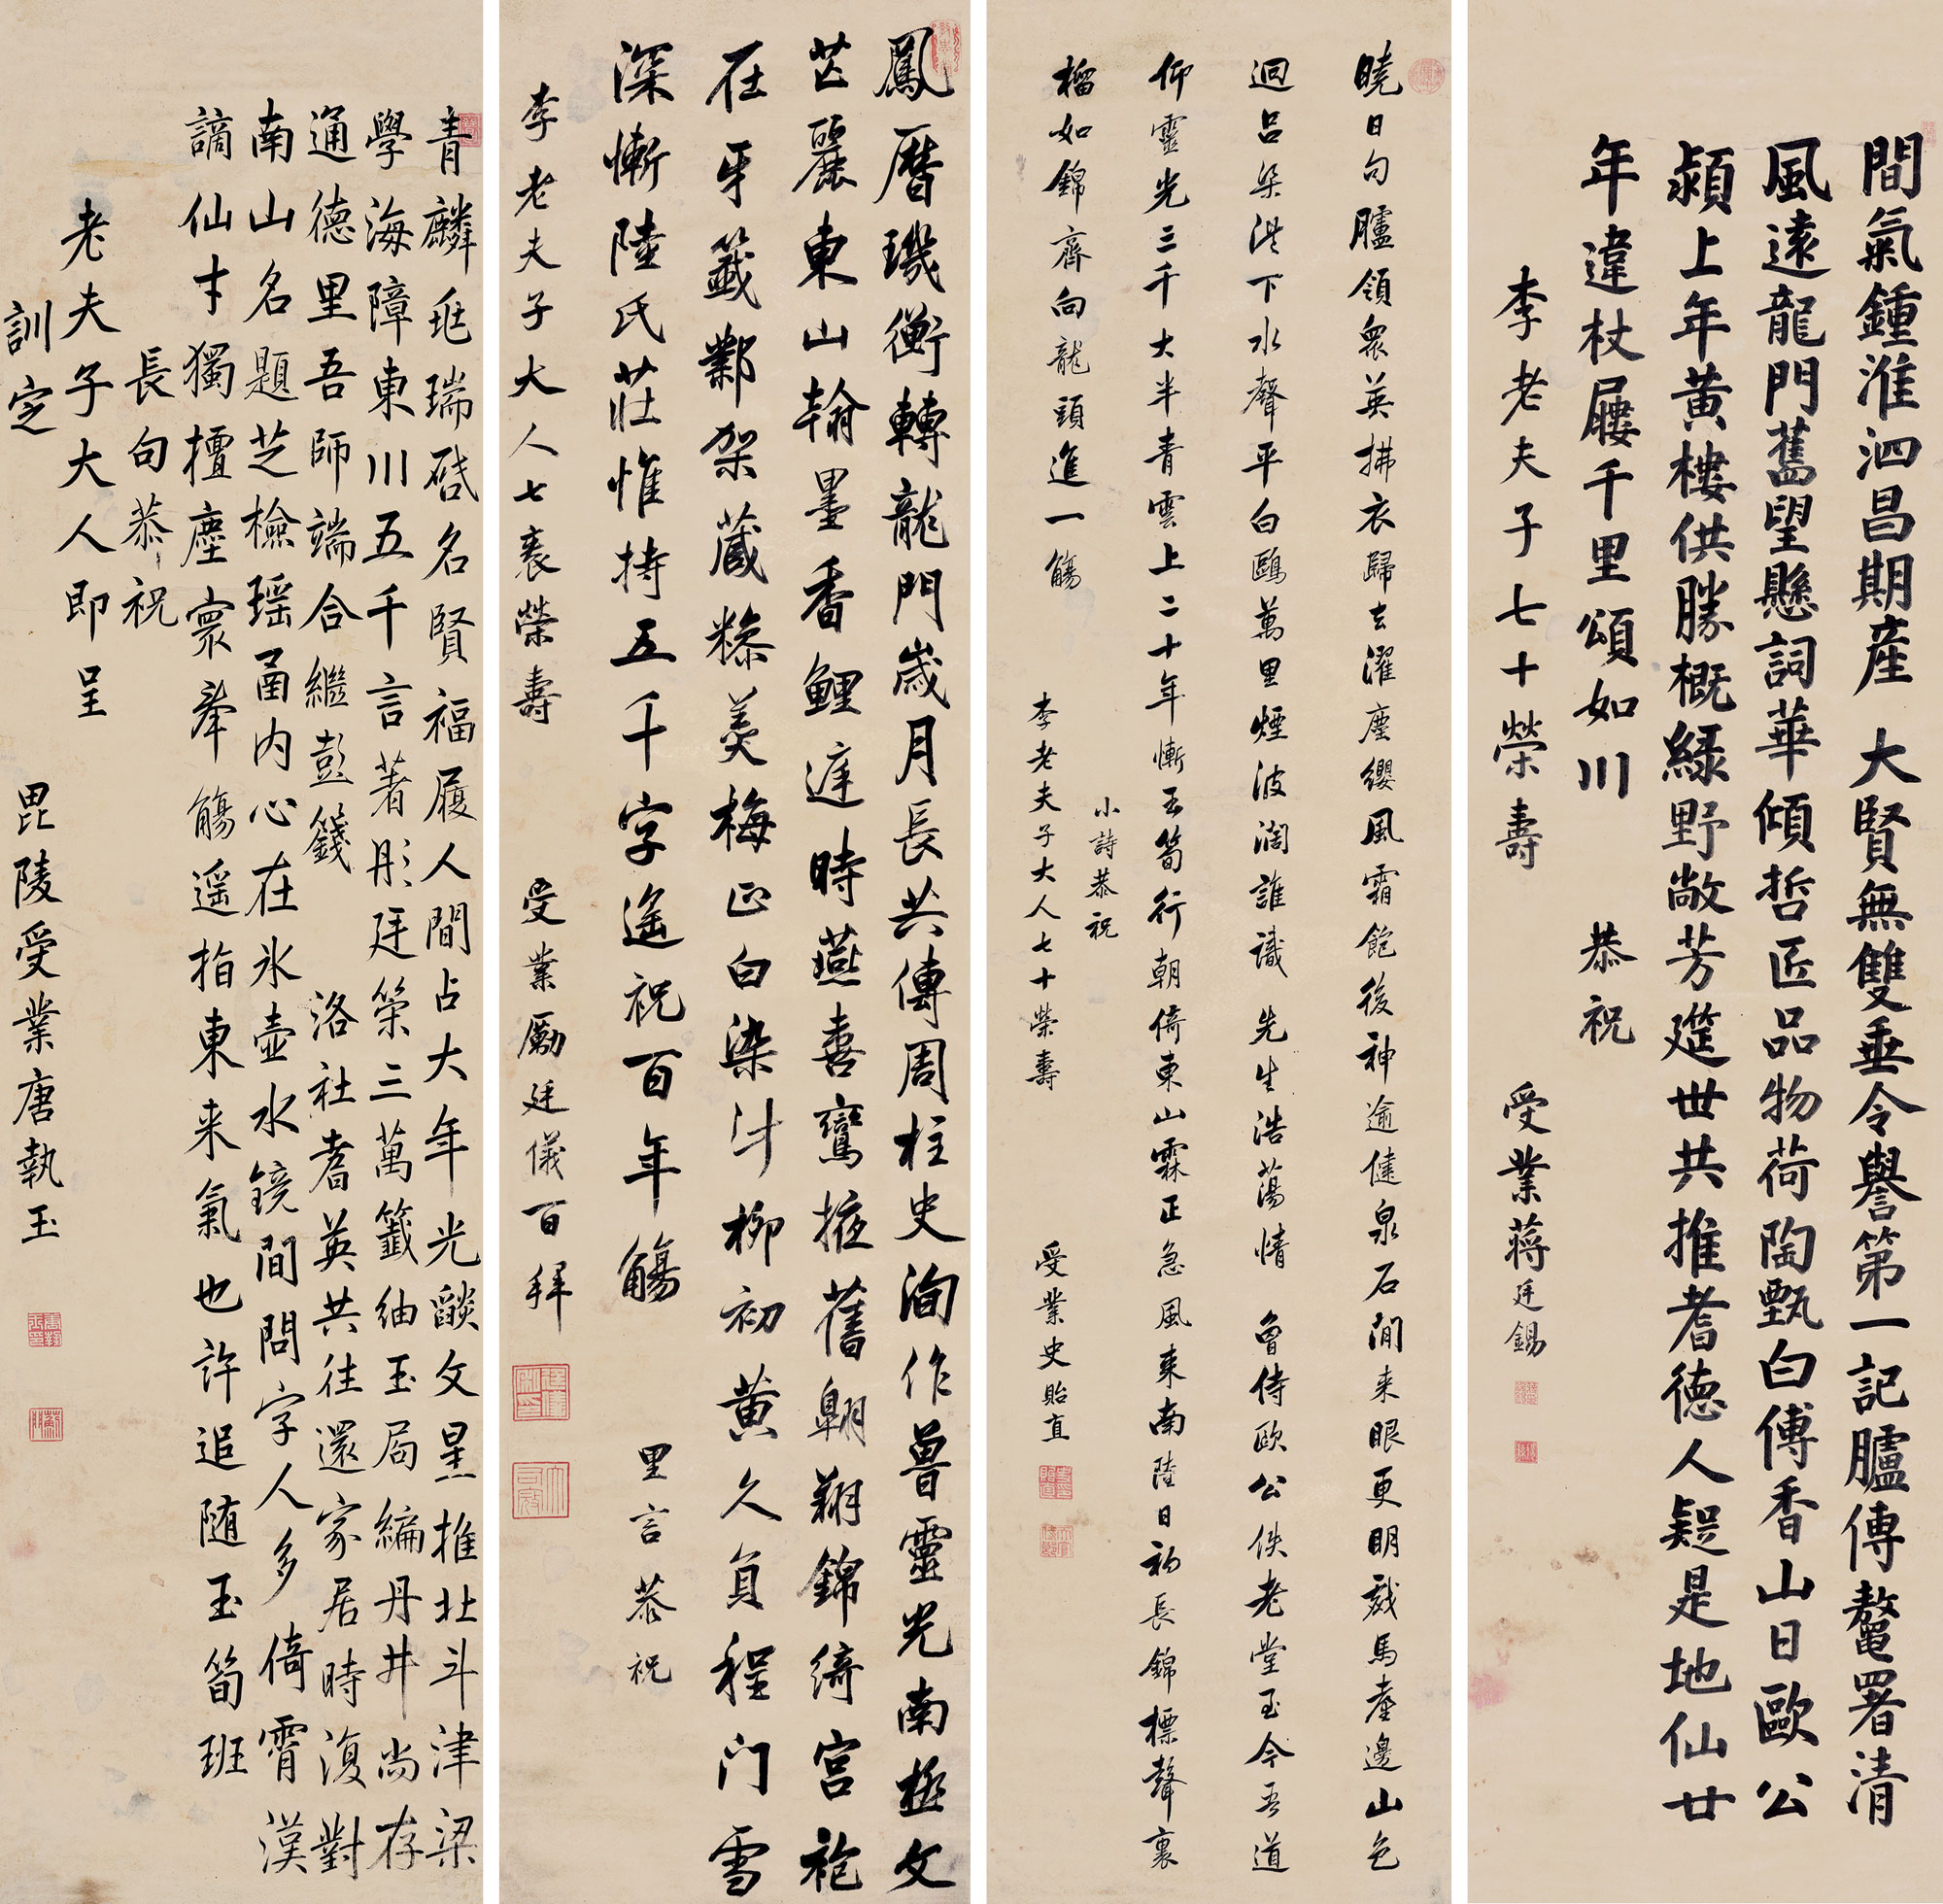 間氣鍾淮泗昌期產大賢無雙垂令譽第一記臚傳鰲署清
風遠龍門舊望懸詞華傾哲匠品物荷陶甄白傅香山日歐公
潁上年黃樓供勝概綠野敞芳筵世共推耆德人疑是地仙廿
年違杖屨千里頌如川
恭祝
李老夫子七十榮壽
受業蔣廷錫
曉日句臚領衆英拂衣歸去濯塵纓風霜飽後神逾健泉石閒来眼更明戲馬臺邊山色
迴呂梁洪下水聲平白鷗萬里煙波濶誰識先生浩蕩情曾侍歐公佚老堂至今吾道
仰靈光三千大半青雲上二十年慚玉筍行朝倚東山霖正急風来南陸日初長錦標聲裏
榴如錦齊向龍頭進一觴
小詩恭祝
李老夫子大人七十榮壽
受業史貽直
鳳曆璣衡轉龍門歲月長共傳周柱史洵作魯靈光南極文
芒麗東山翰墨香鯉遅時燕喜鸞掖舊翱翔錦綺宮袍
在牙籤鄴架藏糝羹梅正白染汁柳初黃久負程门雪
深慚陸氏莊惟持五千字遙祝百年觴
里言恭祝
李老夫子大人七袠榮壽
受業勵廷儀百拜
青麟毓瑞啓名賢福履人間占大年光燄文星推北斗津梁
學海障東川五千言著彤廷策三萬籤紬玉局編丹井尚存
通德里吾師端合繼彭籛洛社耆英共往還家居時復對
南山名題芝檢瑶函内心在氷壺水鏡間問字人多倚霄漢
謫仙才獨擅塵寰舉觴遥指東来氣也許追随玉筍班
長句恭祝
老夫子大人即呈
訓定
毘陵受業唐執玉